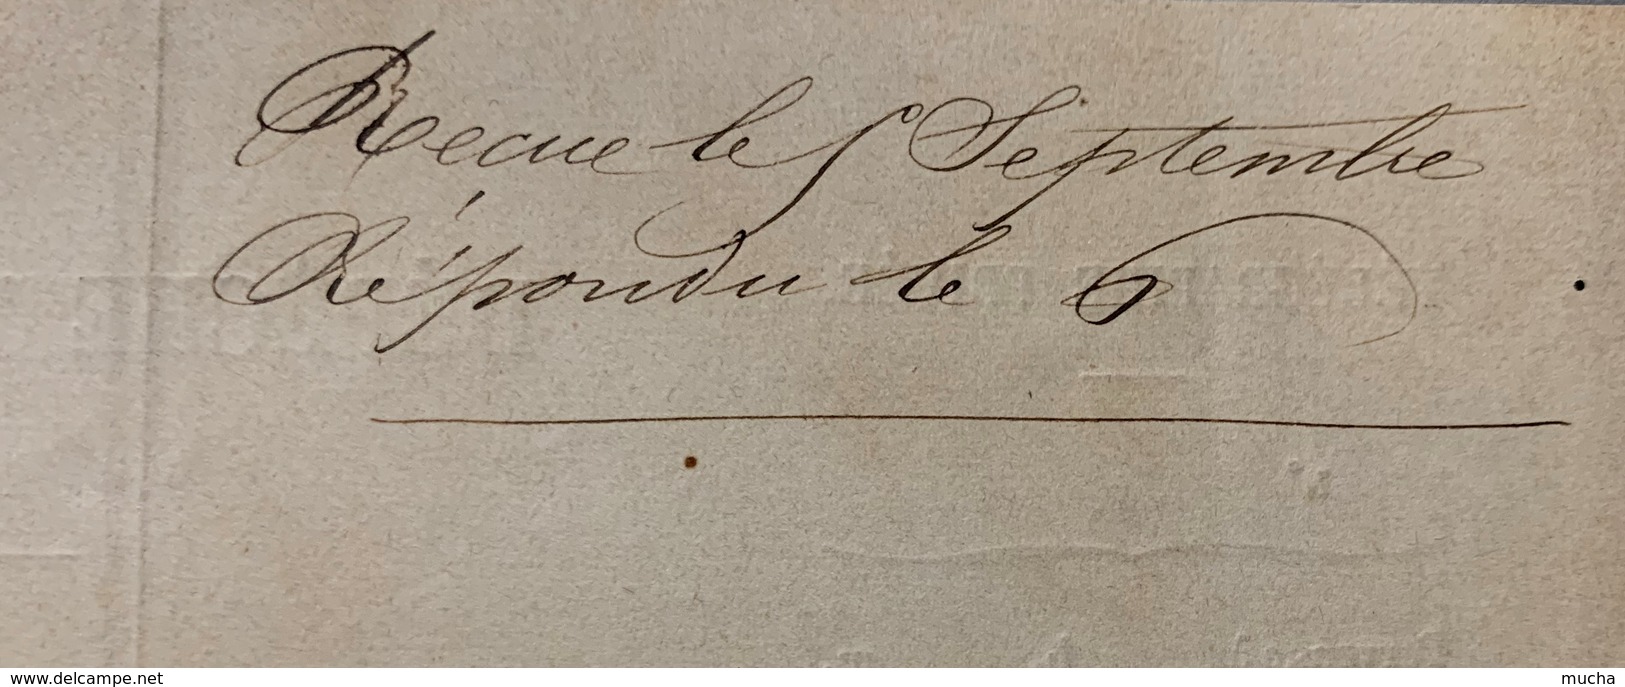 Recue le 5 Septembre
Répondu le 6
delcampe.net
mucha